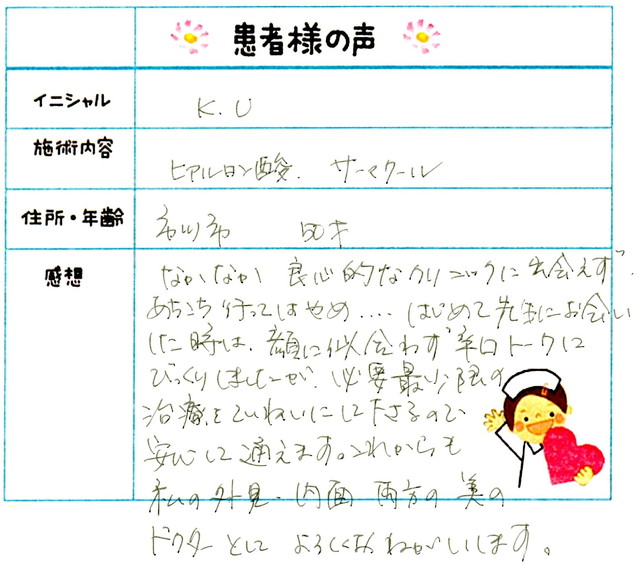 患者様の声
イニシャル K.U
施術内容 ヒアルロン酸. サーマクール
住所・年齢 市川市 50才
感想 なかなか 良心的なクリニックに出会えず、
あちこち行ってはやめ.... はじめて先生にお会い
した時は、顔に似合わず辛口トークに
びっくりしましたが、必要最少限の
治療をていねいにして下さるので
安心して通えます。これからも
私の外見・内面 両方の美の
ドクターとして よろしくおねがいします。